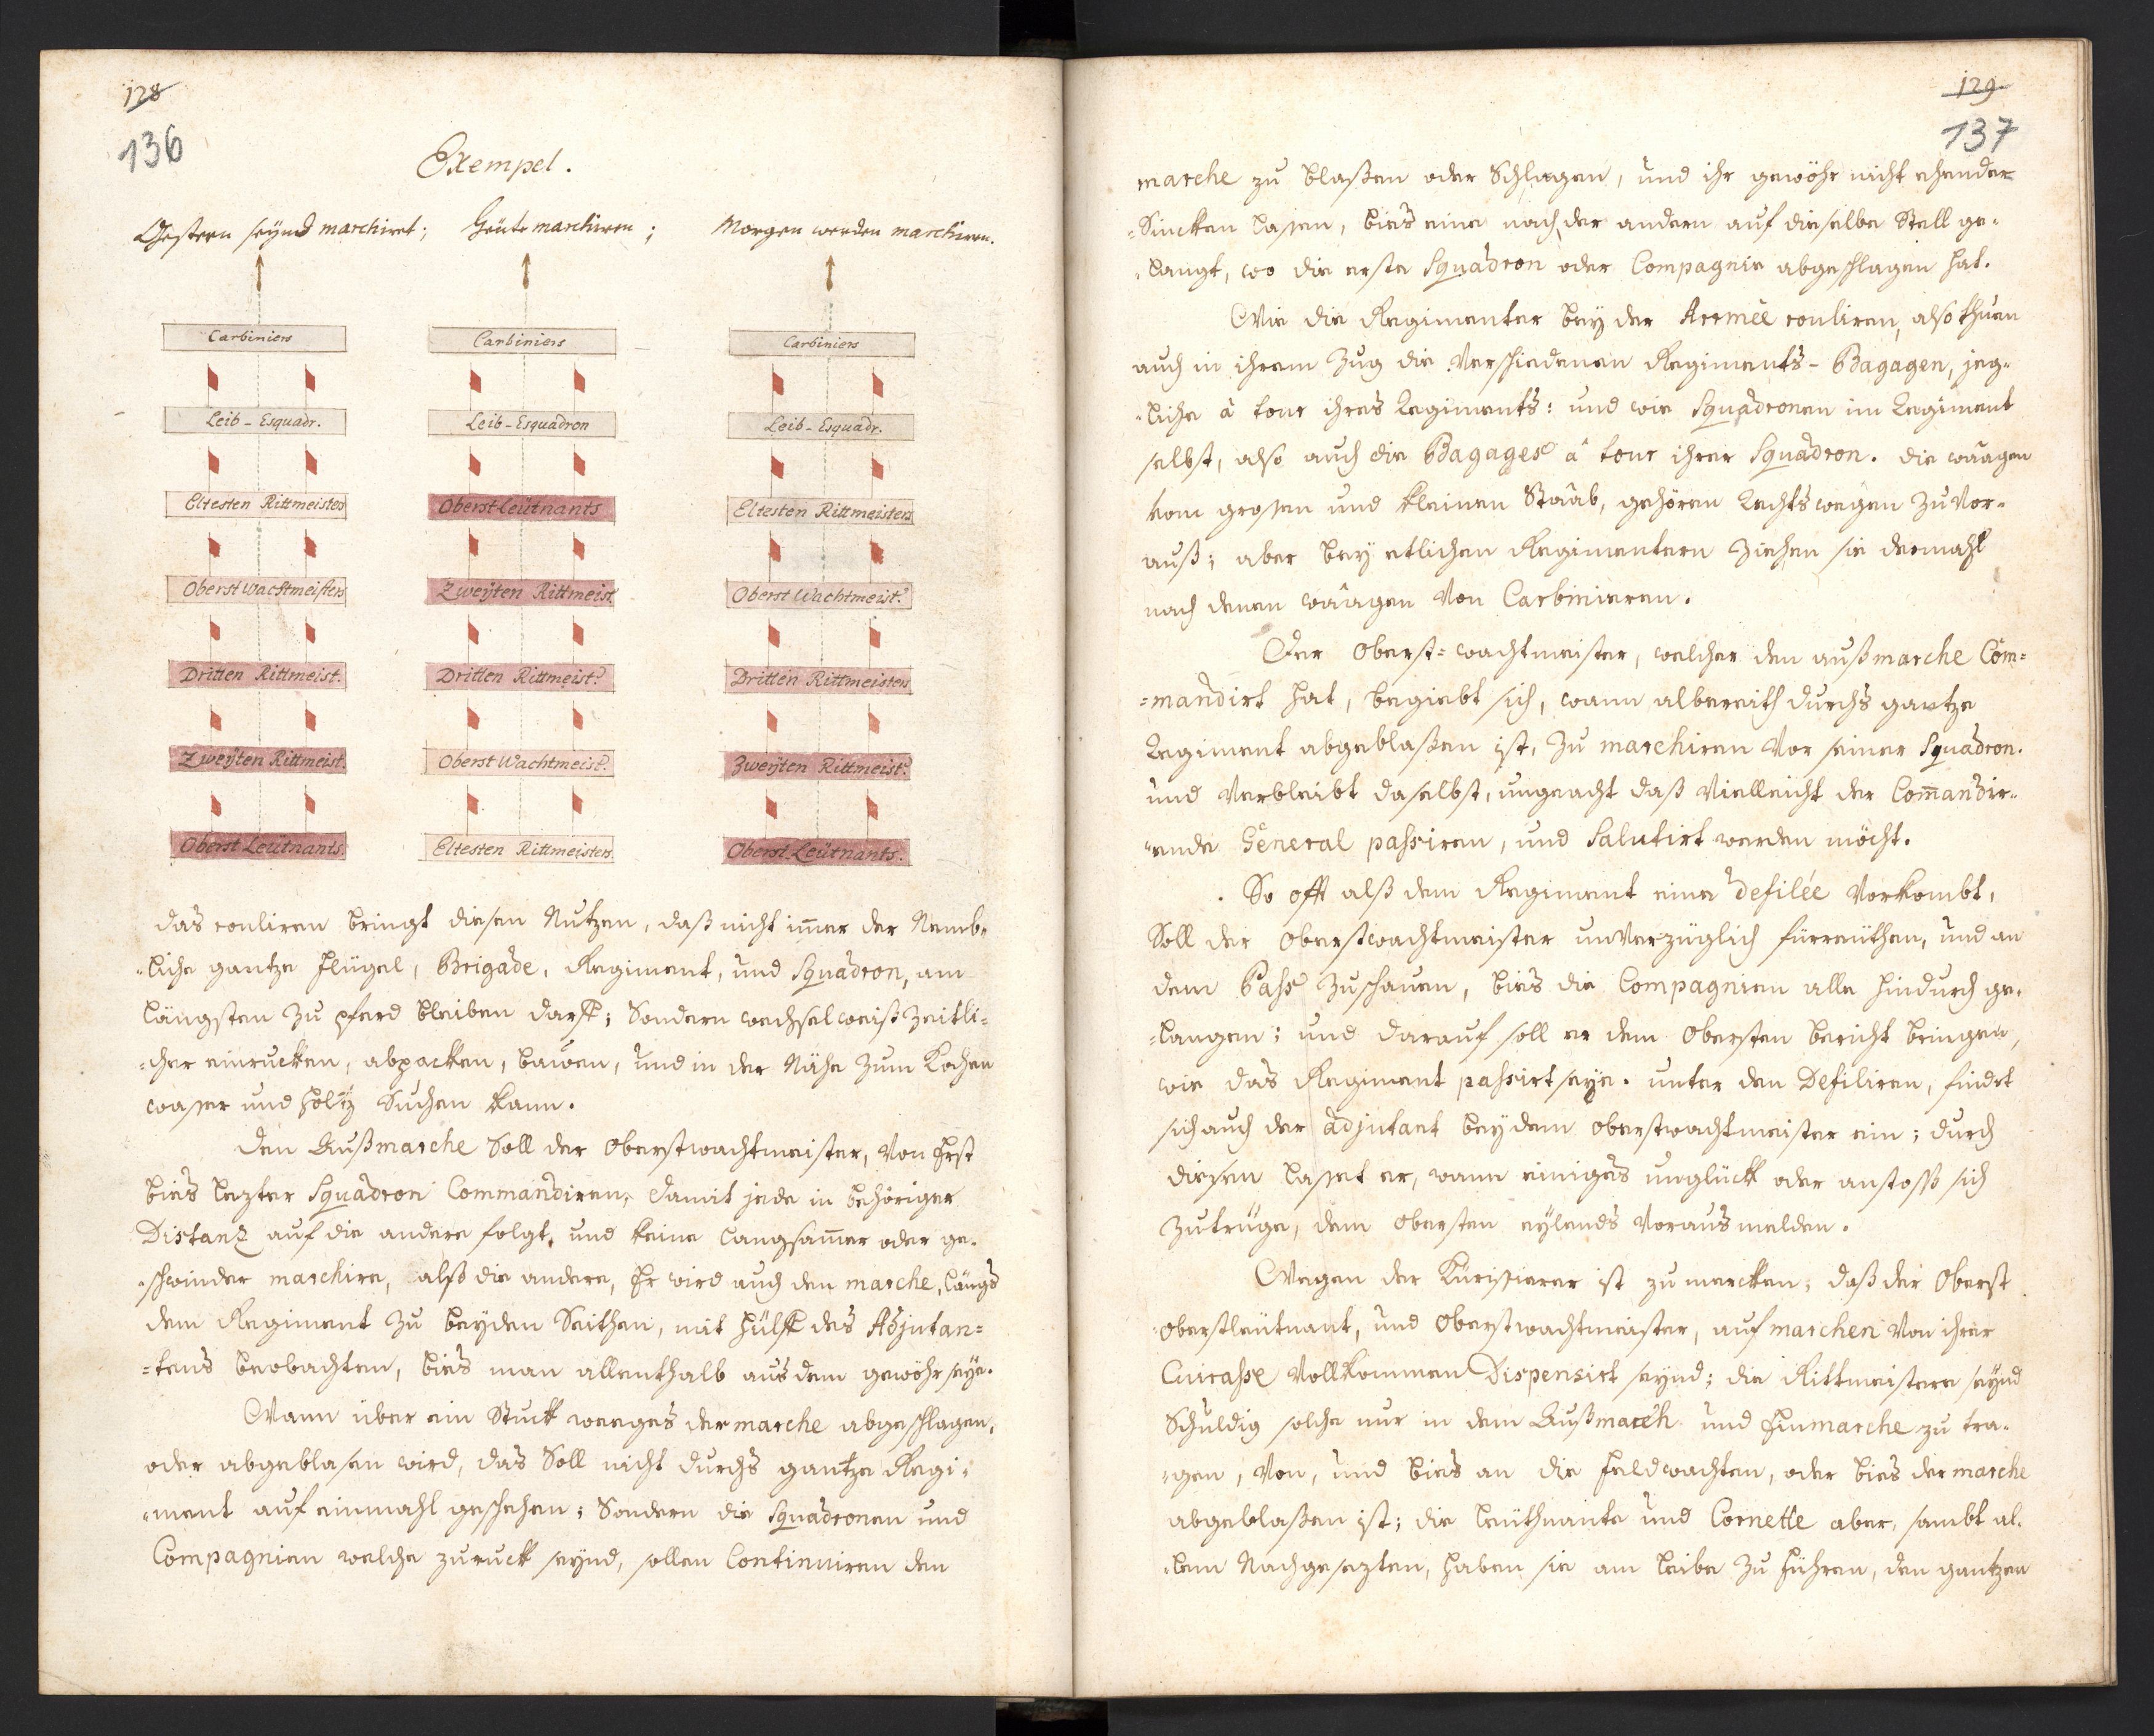 128
136
Exempel.
Gestern seÿnd marchiret; Heüte marchiren; Morgen werden marchiren.
Carbiniers
Carbiniers
Carbiniers
Leib-Esquadr.
Leib-Esquadron
Leib-Esquadr.
Eltesten Rittmeisters
Oberst Leütnants
Eltesten Rittmeisters
Oberst Wachtmeisters
Zweÿten Rittmeist.
Oberst Wachtmeist.
Dritten Rittmeist.
Dritten Rittmeist.
Dritten Rittmeisters
Zweÿten Rittmeist.
Oberst Wachtmeist.
Zweÿten Rittmeist.
Oberst Leütnants.
Eltesten Rittmeisters
Oberst Leütnants.
das rouliren bringt diesen Nutzen, daß nicht im̄er der Nemb-
-liche gantze Flügel, Brigade, Regiment, und Squadron, am
längsten zu pferd bleiben darff; Sondern wechselweiß zeitli-
-cher einrucken, abpacken, bauen, und in der Nähe zum Kochen
wasser und Holtz Suchen kann.
Den Außmarche Soll der Oberstwachtmeister, Von Erst
bies lezter Squadron Commandiren, damit jede in behöriger
Distanz auf die andere folgt, und keine langsam̄er oder ge-
-schwinder marchire, alß die andere, Er wird auch den marche, längs
dem Regiment zu beÿden Seithen, mit Hülff des Adjutan-
-tens beobachten, bies man allenthalb aus dem gewöhr seÿe.
Wann über ein Stuck weeges der marche abgeschlagen,
oder abgeblasen wird, das Soll nicht durchs gantze Regi-
-ment auf einmahl geschehen; Sondern die Squadronen und
Compagnien welche zuruck seÿnd, sollen Continuiren den
129
137
marche zu blaßen oder Schlagen, und ihr gewöhr nicht ehender
-Sincken lassen, bies eine nach der andern auf dieselbe Stell ge-
-langt, wo die erste Squadron oder Compagnie abgeschlagen hat.
Wie die Regimenter beÿ der Armée rouliren, also thuen
auch in ihrem Zug die Verschiedenen Regiments-Bagagen, jeg-
-liche â tour ihres Regiments: und wie Squadronen im Regiment
selbst, also auch die Bagages â tour ihrer Squadron. die wäägen
vom grossen und kleinen Staab, gehören Rechtswegen zu Vor-
auß; aber beÿ etlichen Regimentern ziehen sie dermahl
nach denen wäägen Von Carbinieren.
Der Oberst-wachtmeister, welcher den außmarche Com-
-mandirt hat, begiebt sich, wann albereith durchs gantze
Regiment abgeblaßen ist, zu marchiren Vor seiner Squadron.
und Verbleibt daselbst, ungeacht daß Vielleicht der Com̄andir-
-ende General passiren, und Salutirt werden möcht.
So offt alß dem Regiment eine defilée Vorkombt,
Soll der Oberstwachtmeister unVerzüglich fürreüthen, und an
dem Pass zuschauen, bies die Compagnien alle hindurch ge-
-langen; und darauf soll er dem Obersten bericht bringen,
wie das Regiment passirt seÿe. unter den Defiliren, findet
sich auch der Adjutant beÿ dem Oberstwachtmeister ein; durch
diesen lasset er, wann einiges unglück oder anstoß sich
zutrüge, dem Obersten eÿlends Voraus melden.
Wegen der Kürissierer ist zu mercken; daß der Oberst
Oberstleütnant, und Oberstwachtmeister, auf marchen Von ihrer
Cuirasse Vollkommen Dispensirt seÿnd; die Rittmeistere seÿnd
Schuldig solche nur in dem Außmarch und Einmarche zu tra-
-gen, Von, und bies an die feldwachten, oder bies der marche
abgeblaßen ist; die leüthnants und Cornette aber, sambt al-
-lem Nachgesezten, haben sie am leibe zu führen, den gantzen